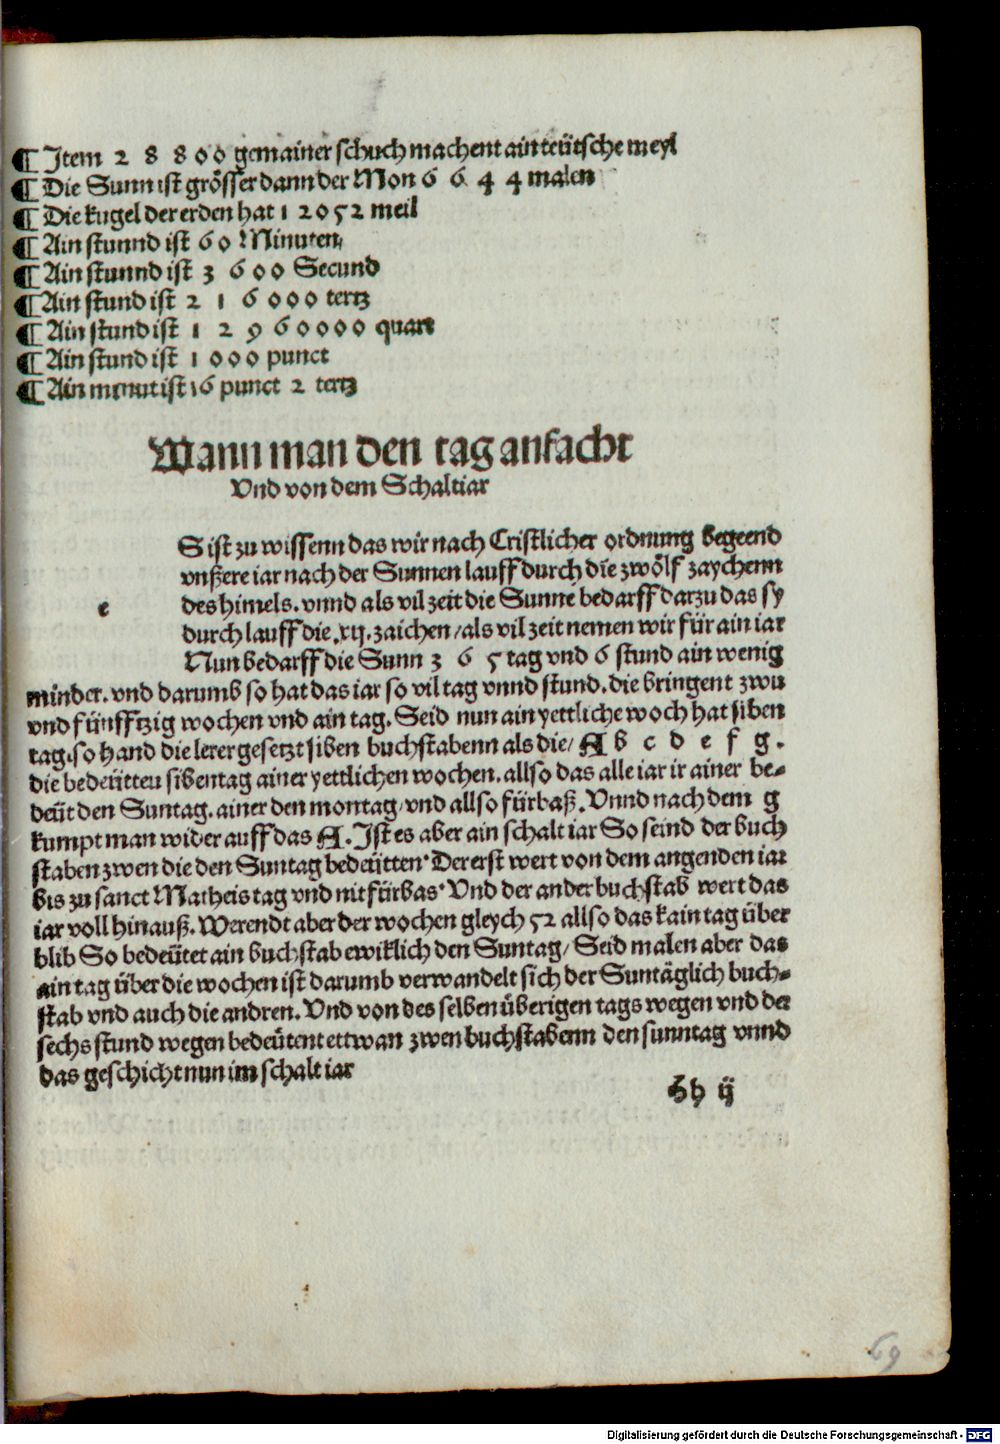 ¶ Jtem 2 8 8 0 0 gemainer schuch machent ain teütsche meyl
¶ Die Sunn ist grösser dann der Mon 6 6 4 4 malen
¶ Die kugel der erden hat 1 2 0 5 2 meil
¶ Ain stunnd ist 6 0 Minuten,
¶ Ain stunnd ist 3 6 0 0 Secund
¶ Ain stund ist 2 1 6 0 0 0 tertz
¶ Ain stund ist 1 2 9 6 0 0 0 0 quart
¶ Ain stund ist 1 0 0 0 punct
¶ Ain minut ist 16 punct 2 tertz
Wann man den tag anfacht
Vnd von dem Schaltiar
e
S ist zu wissenn das wir nach Cristlicher ordnung begeend
vnßere iar nach der Sunnen lauff durch die zwölf zaychenn
des himels. vnnd als vil zeit die Sunne bedarff darzu das sy
durch lauff die .xij. zaichen / als vil zeit nemen wir für ain iar
Nun bedarff die Sunn 3 6 5 tag vnd 6 stund ain wenig
minder. vnd darumb so hat das iar so vil tag vnnd stund. die bringent zwu
vnd fünfftzig wochen vnd ain tag. Seid nun ain yettliche woch hat siben
tag. so hand die lerer gesetzt siben buchstabenn als die / A b c d e f g .
die bedeütten sibentag ainer yettlichen wochen. allso das alle iar ir ainer be⸗
deüt den Suntag. ainer den montag / vnd allso fürbaß. Vnnd nach dem g
kumpt man wider auff das A. Jst es aber ain schalt iar So seind der buch
staben zwen die den Suntag bedeütten. Der erst wert von dem angenden iar
bis zu sanct Matheis tag vnd nit fürbas. Vnd der ander buchstab wert das
iar voll hinauß. Werendt aber der wochen gleych 52 allso das kain tag über
blib So bedeütet ain buchstab ewiklich den Suntag / Seid malen aber das
ain tag über die wochen ist darumb verwandelt sich der Suntäglich buch⸗
stab vnd auch die andren. Vnd von des selben überigen tags wegen vnd der
sechs stund wegen bedeütent ettwan zwen buchstabenn den sunntag vnnd
das geschicht nun im schalt iar
bh ij
69
Digitalisierung gefördert durch die Deutsche Forschungsgemeinschaft - DFG